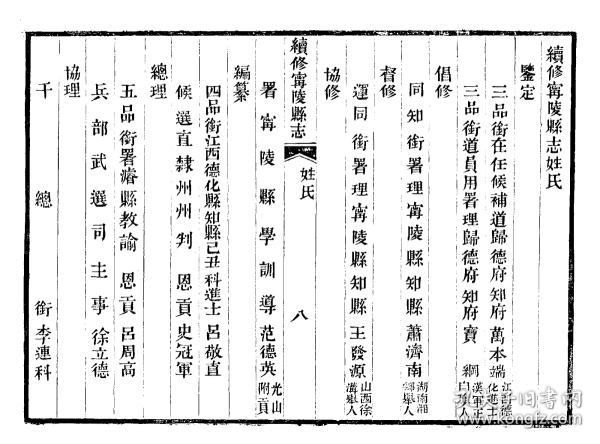 續修甯陵縣志姓氏
鑒定
三品銜在任候補道歸德府知府萬本端 江西德化進士
三品銜道員用署理歸德府知府寶 綱 漢軍正白旗人
倡修
同知銜署理甯陵縣知縣蕭濟南 湖南湘舉人
督修
運同銜署理甯陵縣知縣王發源 山西徐溝舉人
協修
續修甯陵縣志
姓氏
八
署甯陵縣學訓導范德英 光山附貢
編纂
四品銜江西德化縣知縣己丑科進士呂敬直
候選直隸州州判恩貢史冠軍
總理
五品銜署濬縣教諭恩貢呂周高
兵部武選司主事徐立德
協理
千總銜李連科
孔夫子旧书网
kongfz.com